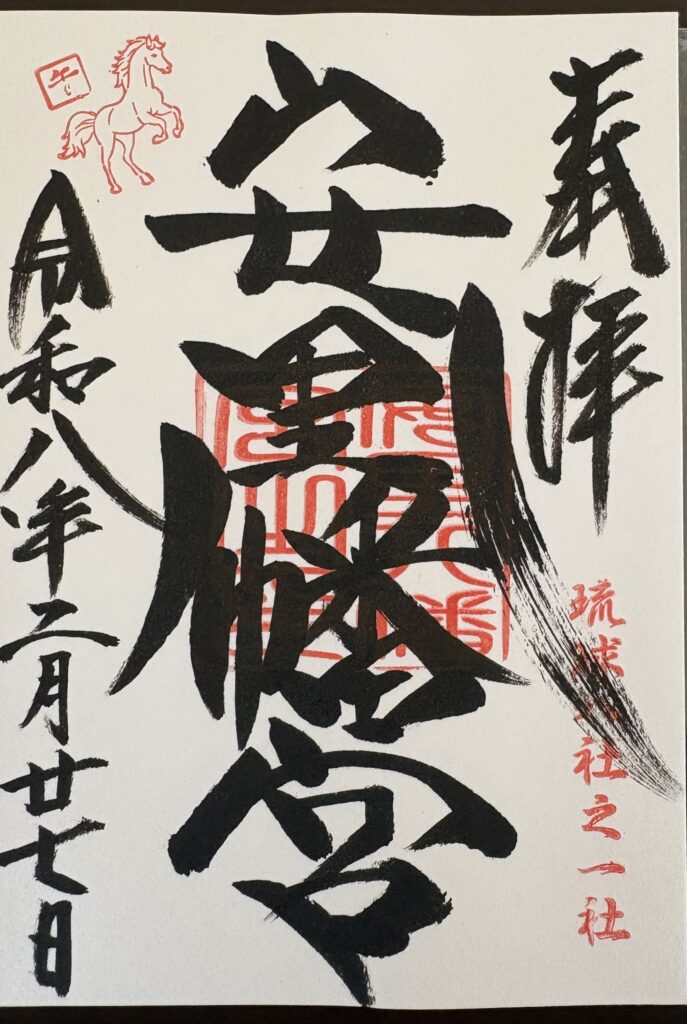 奉拝
琉球八社之一社
安里八幡宮
午
令和八年二月廿七日